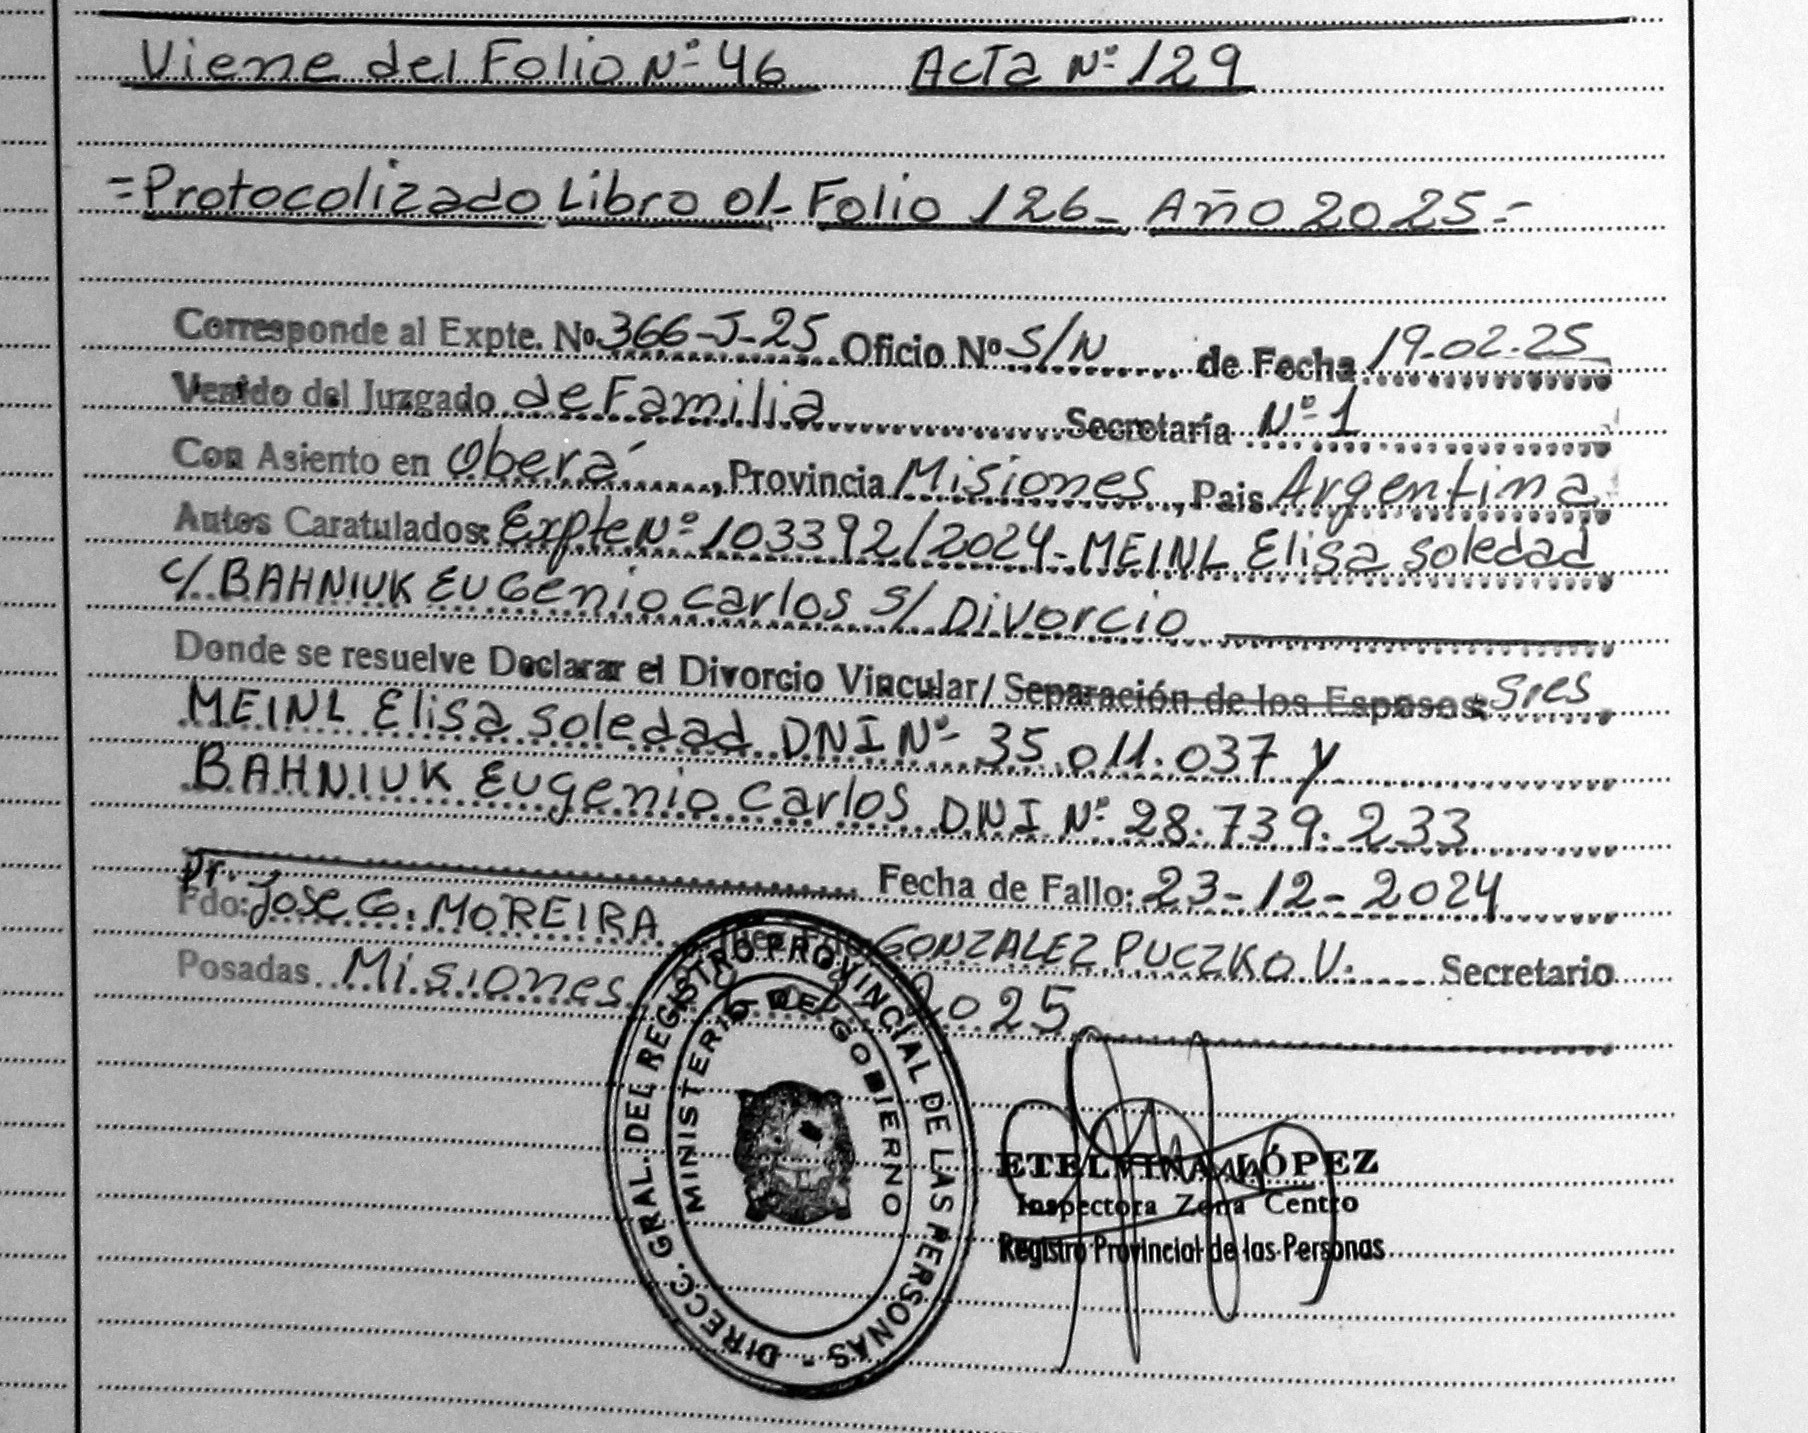 Viene del Folio Nº 46 Acta Nº 129
=Protocolizado Libro 01- Folio 126- Año 2025.=
Corresponde al Expte. Nº 366-J-25 Oficio Nº S/N de Fecha 19-02-25
Venido del Juzgado de Familia Secretaría Nº 1
Con Asiento en Oberá, Provincia Misiones, Pais Argentina
Autos Caratulados: Expte Nº 103392/2024- MEINL Elisa Soledad
c/ BAHNIUK EUGenio Carlos s/ Divorcio
Donde se resuelve Declarar el Divorcio Vincular/ Separación de los Esposos: Sres
MEINL Elisa Soledad DNI Nº 35.011.037 y
BAHNIUK Eugenio Carlos DNI Nº 28.739.233
Fecha de Fallo: 23-12-2024
Dr.
Fdo: Jose G. MOREIRA Juez GONZALEZ PUCZKO V. Secretario
Posadas Misiones 2025
DIRECC. GRAL. DEL REGISTRO PROVINCIAL DE LAS PERSONAS -
MINISTERIO DE GOBIERNO
ETELVINA LÓPEZ
Inspectora Zona Centro
Registro Provincial de las Personas